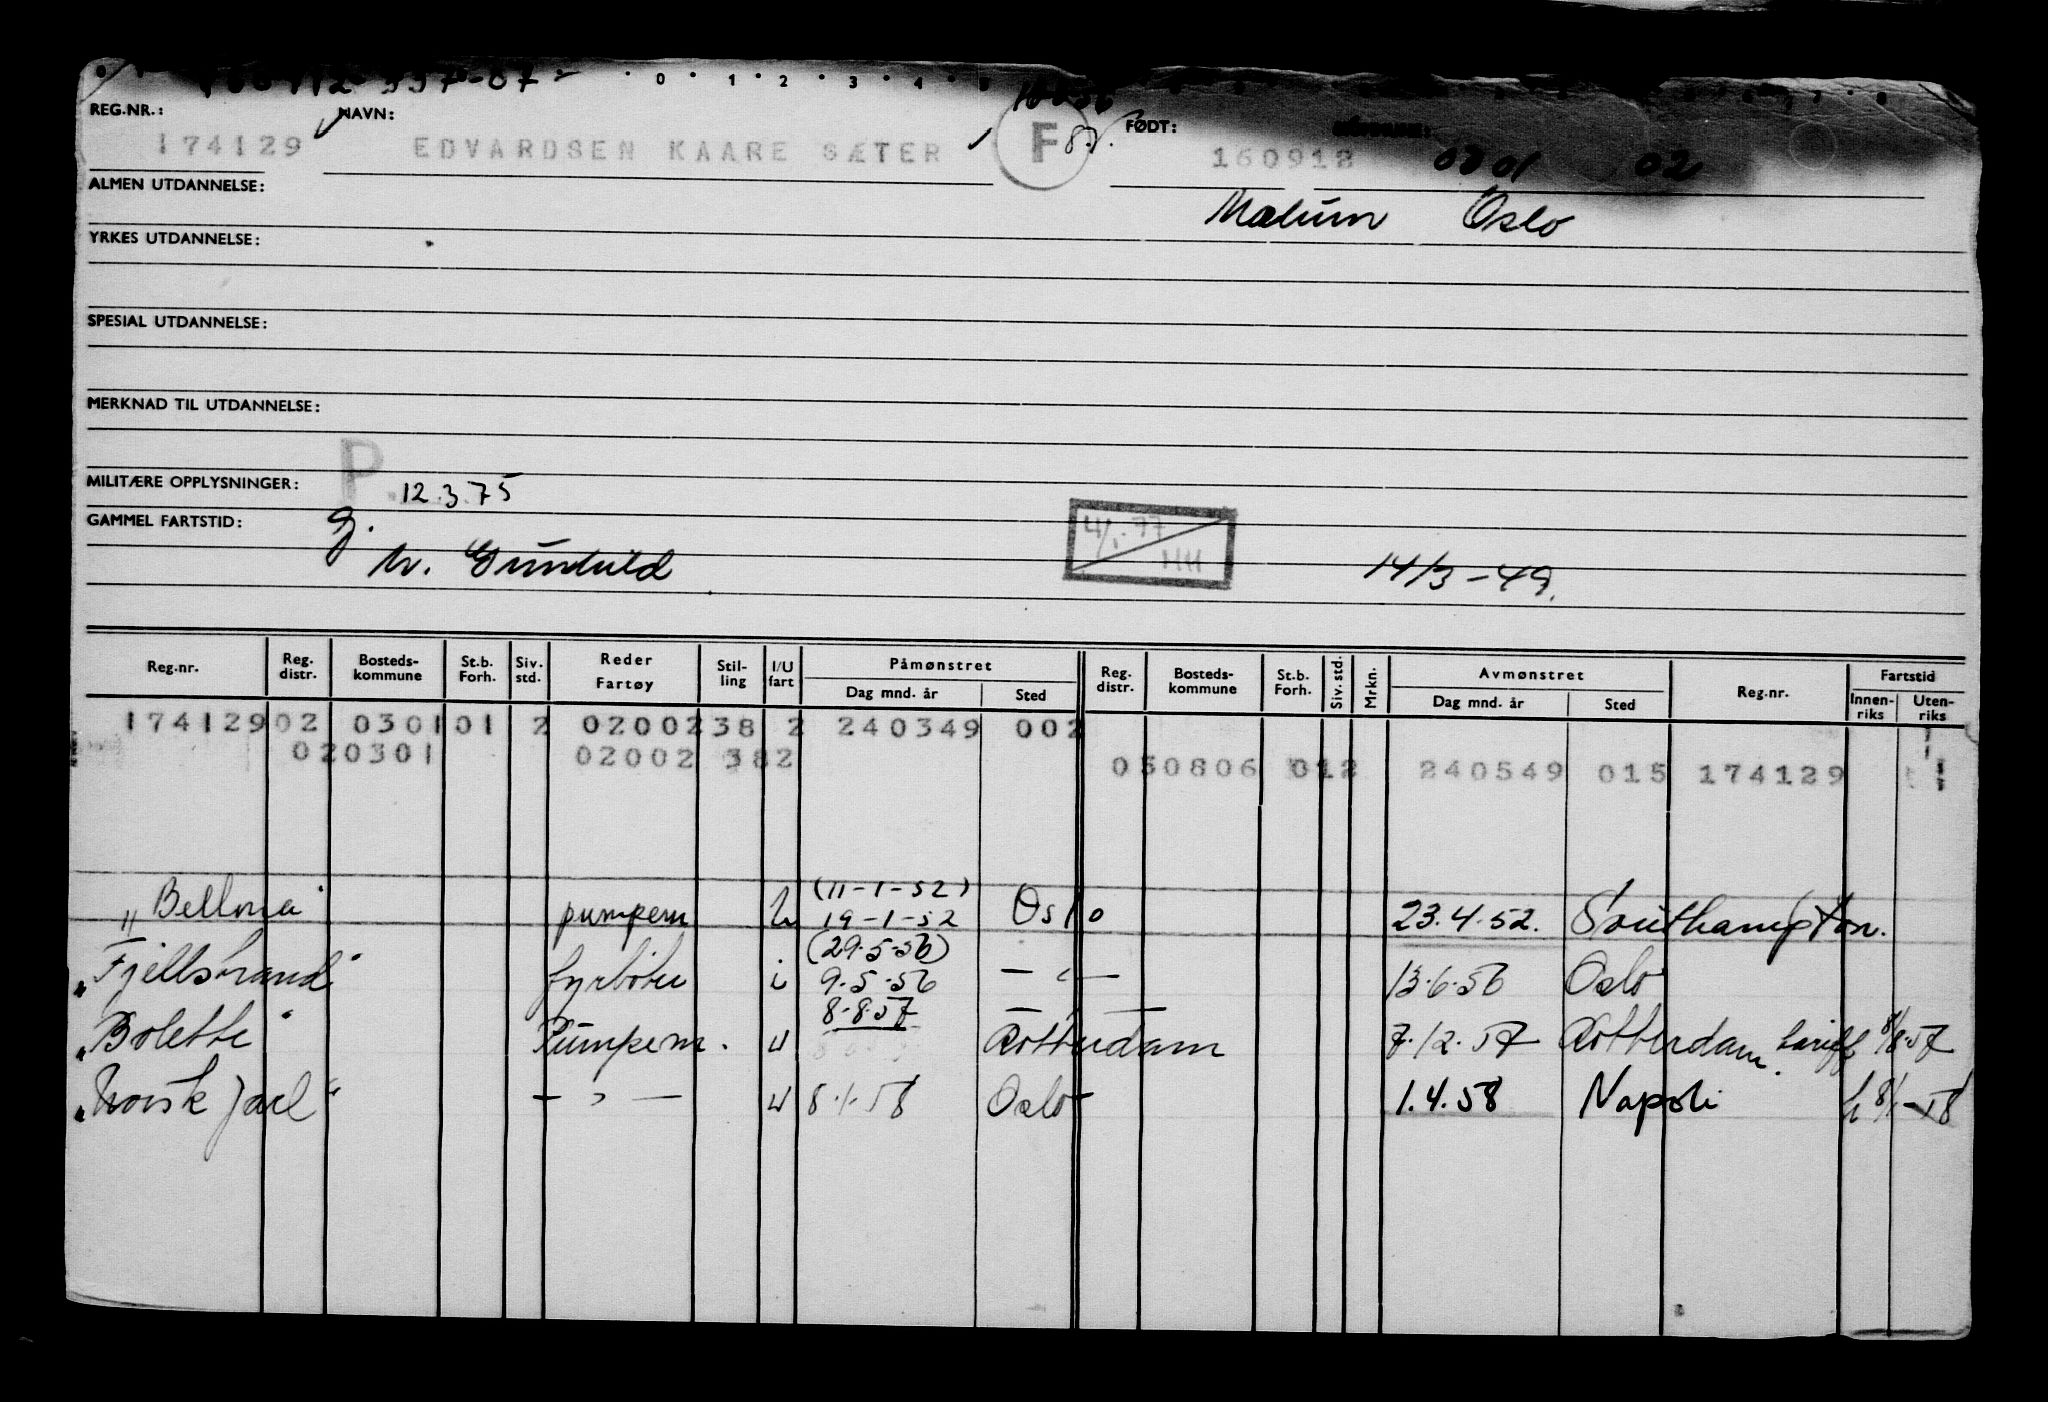 0 · 1 · 2 · 3 · 4
REG.NR.: NAVN: FØDT:
174129 EDVARDSEN KAARE SÆTER F 160912 0301 02
ALMEN UTDANNELSE: Mælum Oslo
YRKES UTDANNELSE:
SPESIAL UTDANNELSE:
MERKNAD TIL UTDANNELSE:
P.
MILITÆRE OPPLYSNINGER: 12.3.75
GAMMEL FARTSTID: g. 4/1-77
m. Gunhild HH 14/3-49.
Reg.nr. Reg. distr. Bosteds-kommune St.b. Forh. Siv. std. Reder Fartøy Stil-ling I/U fart Påmønstret Dag mnd. år Sted Reg. distr. Bosteds-kommune St.b. Forh. Siv. std. Mrkn. Avmønstret Dag mnd. år Sted Reg.nr. Fartstid Innen-riks Uten-riks
174129 02 0301 01 2 02002 38 2 240349 002
020301 02002 382 030806 012 240549 015 174129
(11-1-52)
"Bellona" pumpem u 19-1-52 Oslo 23.4.52. Southampton.
(29.5.56)
"Fjellstrand" fyrbøter i 9.5.56 — " — 13.6.56 Oslo
8.8.57 — —
"Bolette" Pumpem. u Rotterdam 7.12.57 Rotterdam. tariff 8/8.57
"Norsk Jarl" — " — u 8.1.58 Oslo 1.4.58 Napoli h 8/1-58